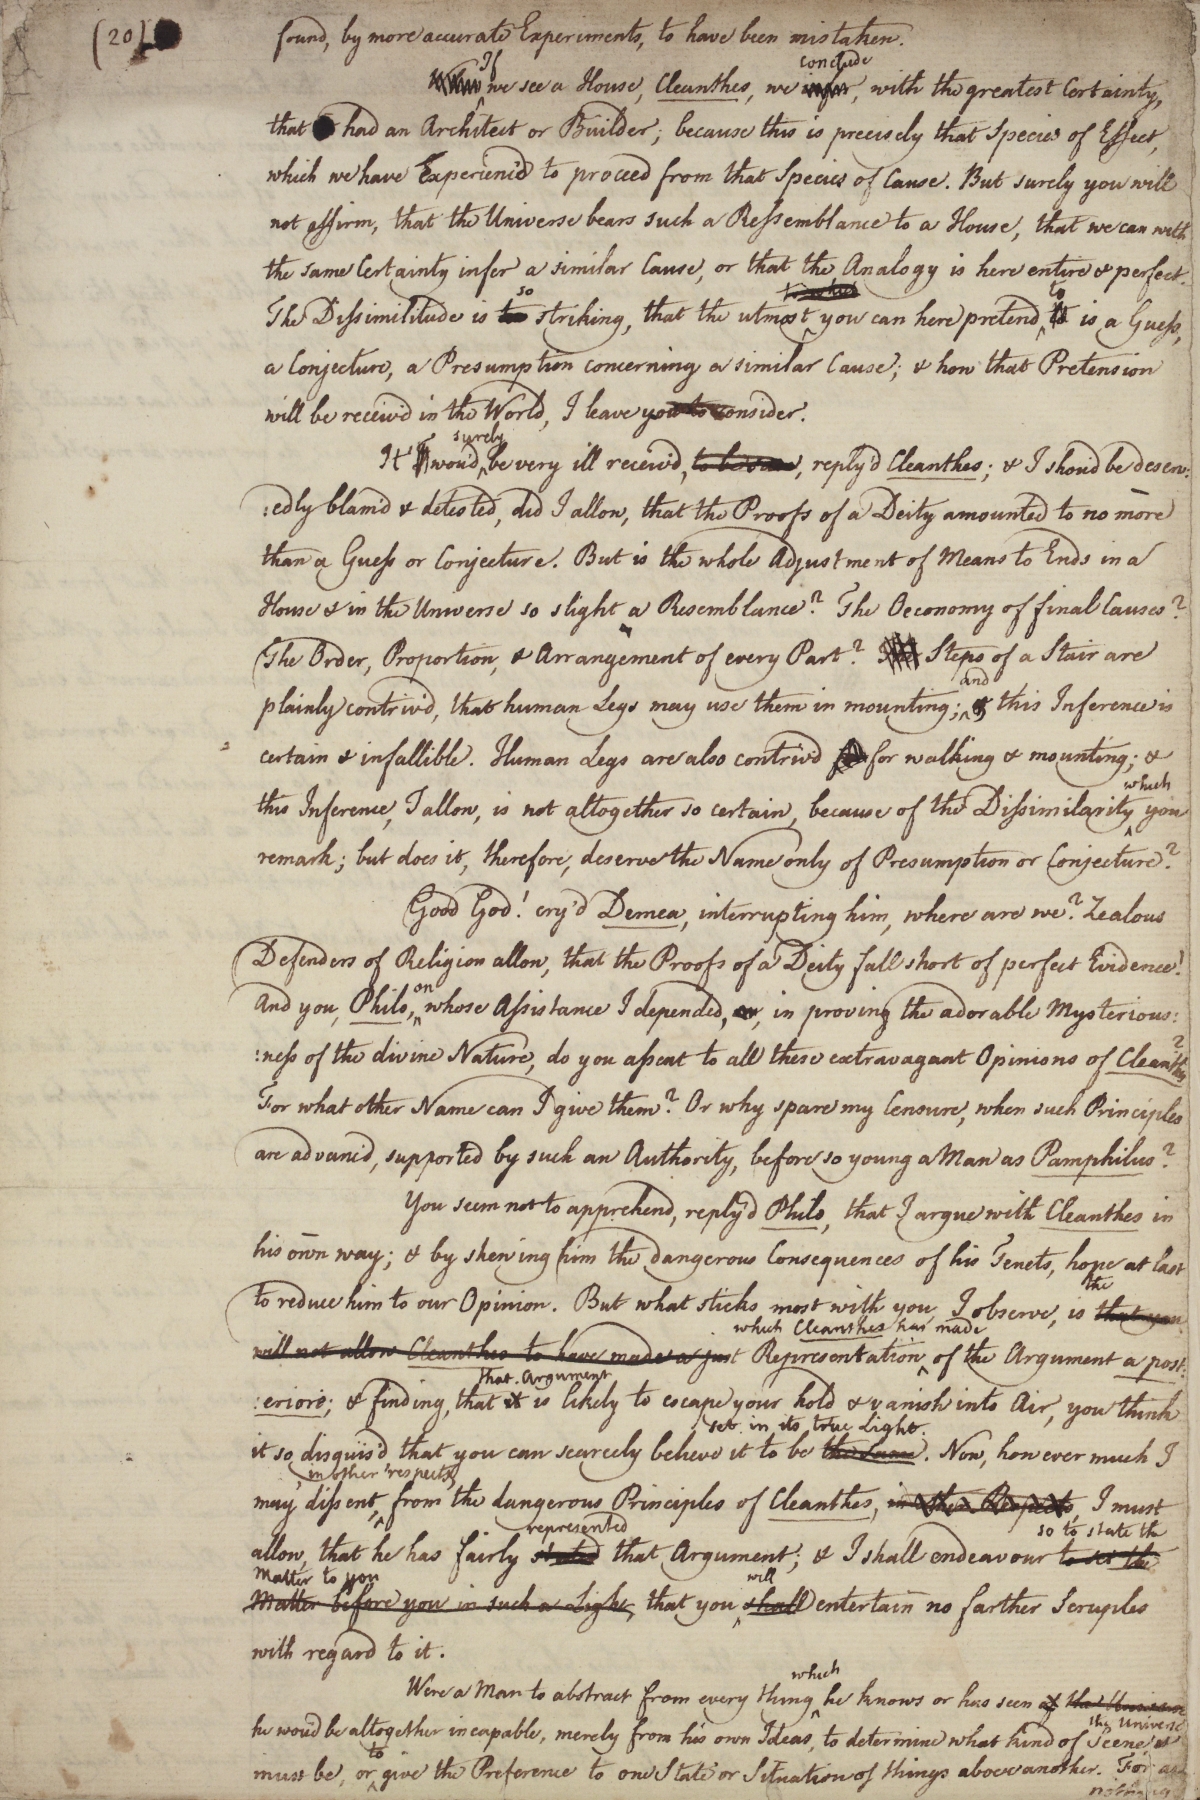 (20)
found, by more accurate Experiments, to have been mistaken.
If conclude
we see a House, Cleanthes, we infer, with the greatest Certainty,
that had an Architect or Builder; because this is precisely that Species of Effect,
which we have Experienc'd to proceed from that Species of Cause. But surely you will
not affirm, that the Universe bears such a Ressemblance to a House, that we can with
the same Certainty infer a similar Cause, or that the Analogy is here entire & perfect.
so to which to
The Dissimilitude is striking, that the utmost you can here pretend is a Guess,
a Conjecture, a Presumption concerning a similar Cause; & how that Pretension
will be receiv'd in the World, I leave you to consider.
surely
It wou'd be very ill receiv'd, to be sure, reply'd Cleanthes; & I shou'd be deserv:
:edly blam'd & detested, did I allow, that the Proofs of a Deity amounted to no more
than a Guess or Conjecture. But is the whole Adjustment of Means to Ends in a
House & in the Universe so slight a Resemblance? The Oeconomy of final Causes?
The Order, Proportion, & Arrangement of every Part? Steps of a Stair are
and
plainly contriv'd, that human Legs may use them in mounting; & this Inference is
certain & infallible. Human Legs are also contriv'd for walking & mounting; &
which
this Inference, I allow, is not altogether so certain, because of the Dissimilarity you
remark; but does it, therefore, deserve the Name only of Presumption or Conjecture?
Good God! cry'd Demea, interrupting him, where are we? Zealous
Defenders of Religion allow, that the Proofs of a Deity fall short of perfect Evidence!
on
And you, Philo, whose Assistance I depended, in proving the adorable Mysterious:
:ness of the divine Nature, do you assent to all these extravagant Opinions of Cleanthes?
For what other Name can I give them? Or why spare my Censure, when such Principles
are advanc'd, supported by such an Authority, before so young a Man as Pamphilus?
You seem not to apprehend, reply'd Philo, that I argue with Cleanthes in
his own way; & by shewing him the dangerous Consequences of his Tenets, hope at last
the
to reduce him to our Opinion. But what sticks most with you, I observe, is that you
which Cleanthes has made
will not allow Cleanthes to have made a just Representation of the Argument a post:
that Argument
:eriori; & finding, that it is likely to escape your hold & vanish into Air, you think
set in its true Light.
it so disguis'd that you can scarcely believe it to be the same. Now, however much I
in other respects,
may dissent, from the dangerous Principles of Cleanthes, in other Respects, I must
represented so to state the
allow, that he has fairly stated that Argument; & I shall endeavour to set the
Matter to you will
Matter before you in such a Light, that you shall entertain no farther Scruples
with regard to it.
which
Were a Man to abstract from every thing he knows or has seen of the Universe
the Universe
he wou'd be altogether incapable, merely from his own Ideas, to determine what kind of Scene
to
must be, or give the Preference to one State or Situation of things above another. For as
nothing